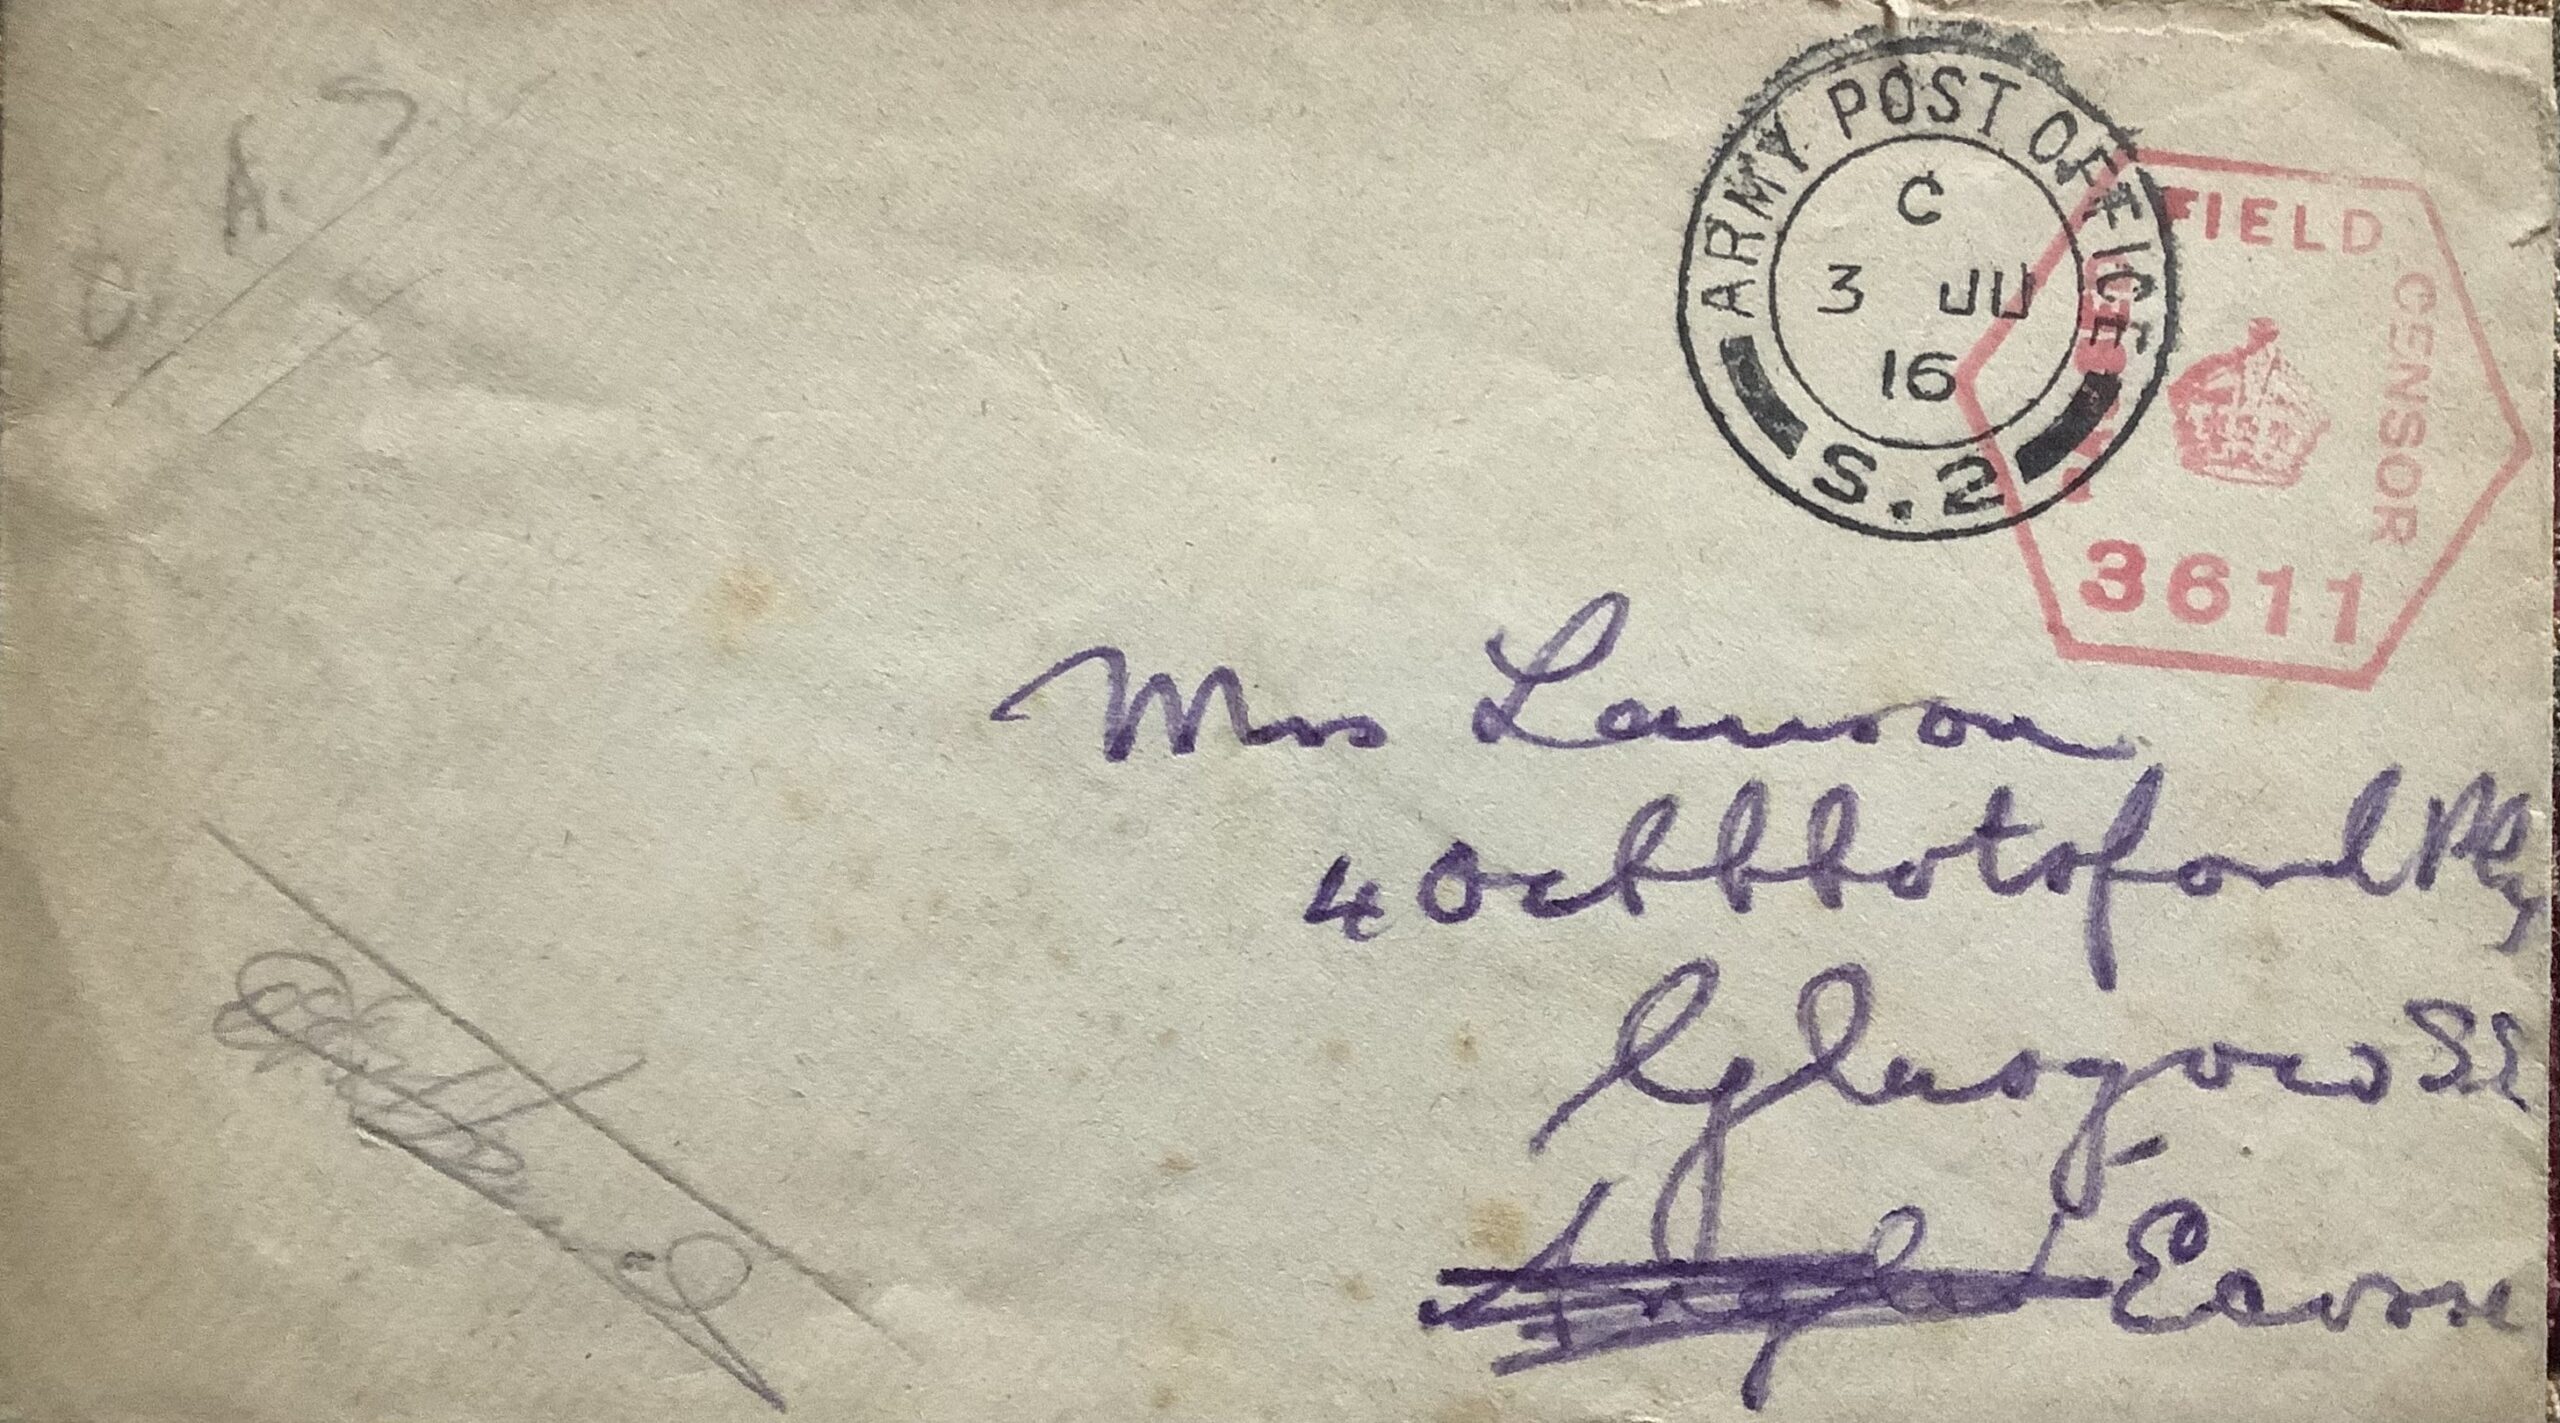 O. A. S.
ARMY POST OFFICE
C
3 JU
16
S. 2
FIELD
CENSOR
3611
Mrs Lawson
4 Abbotsford Pl
Glasgow SE
Ecosse